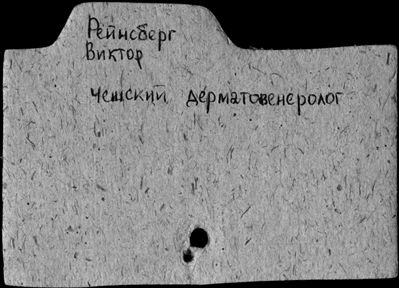 Рейнсберг
Виктор
Чешский дерматовенеролог